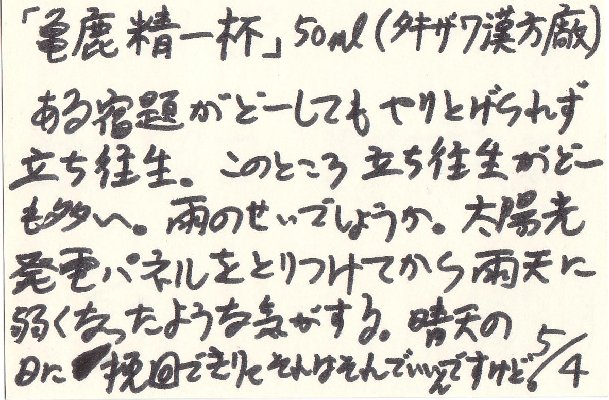 「亀鹿精一杯」50ml(タキザワ漢方廠)
ある宿題がどーしてもやりとげられず
立ち往生。このところ立ち往生がどー
も多い。雨のせいでしょうか。太陽光
発電パネルをとりつけてから雨天に
弱くなったような気がする。晴天の
日に挽回できりゃそれはそんでいいんですけど。5/4